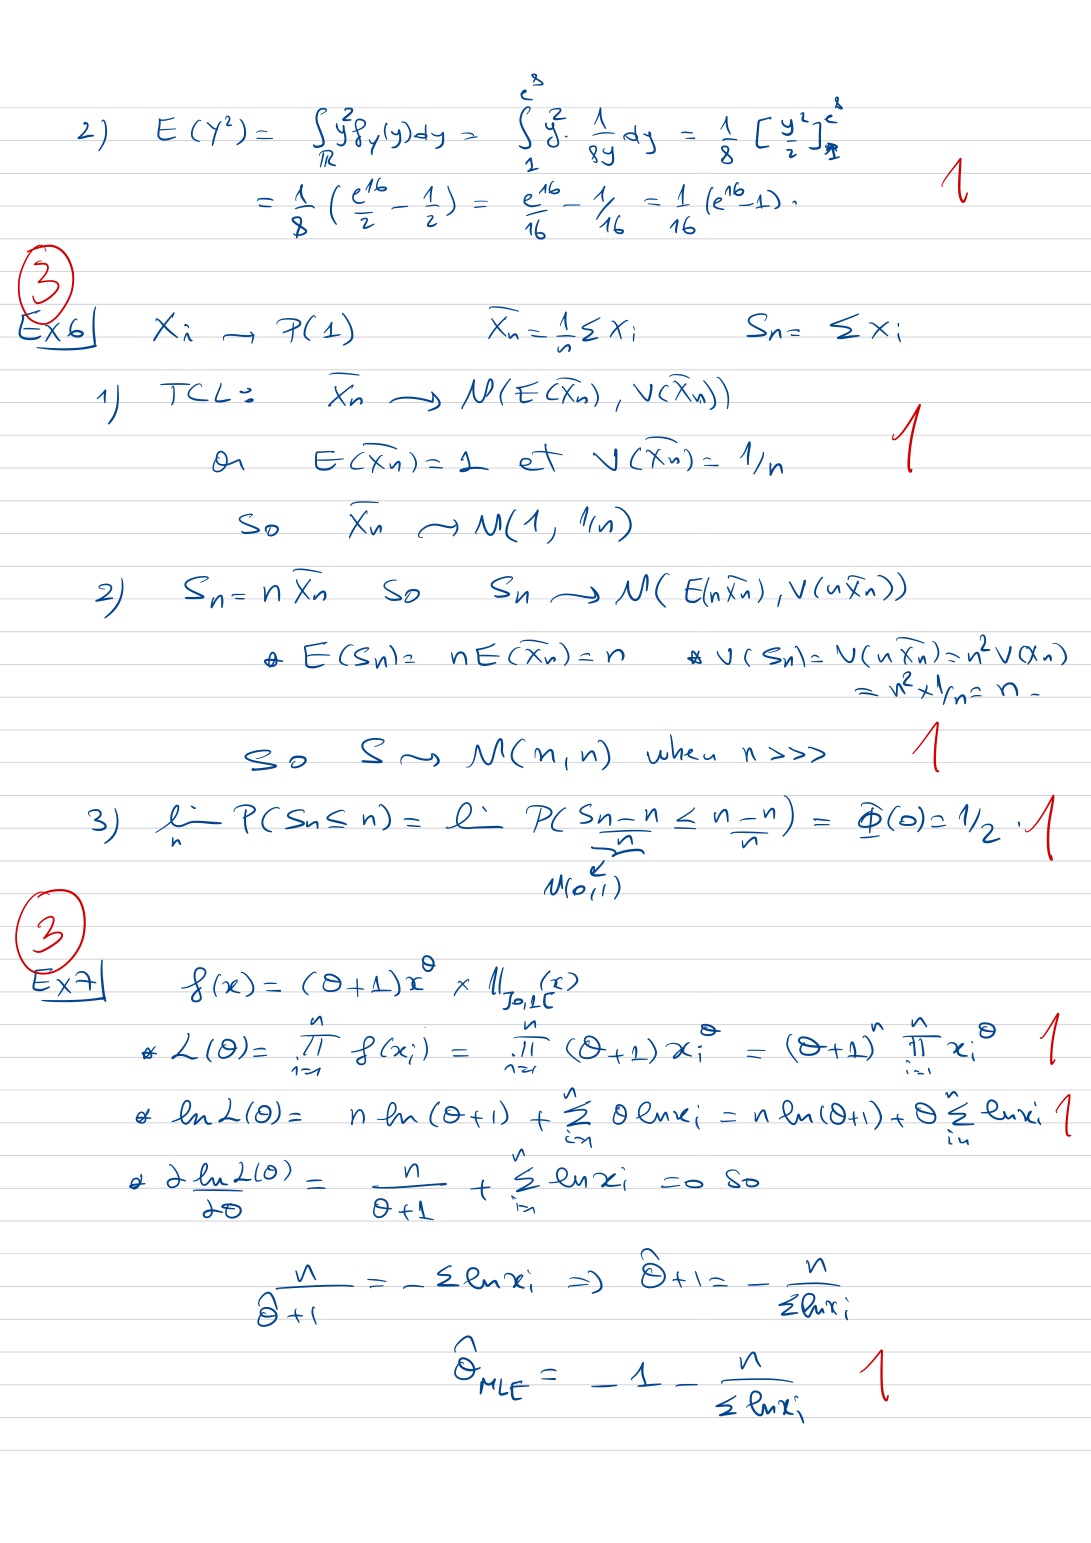 2) E(Y²) = ∫_ℝ y² f_Y(y) dy = ∫_1^{e^8} y² · 1/(8y) dy = 1/8 [y²/2]_1^{e^8}
= 1/8 (e^16/2 - 1/2) = e^16/16 - 1/16 = 1/16 (e^16 - 1). 1
3
Ex6 X_i ⇝ P(1) X̄_n = 1/n Σ X_i S_n = Σ X_i
1) TCL: X̄_n ⇝ N(E(X̄_n), V(X̄_n))
or E(X̄_n) = 1 et V(X̄_n) = 1/n 1
so X̄_n ⇝ N(1, 1/n)
2) S_n = n X̄_n so S_n ⇝ N(E(n X̄_n), V(n X̄_n))
* E(S_n) = n E(X̄_n) = n * V(S_n) = V(n X̄_n) = n² V(X_n)
= n² × 1/n = n.
So S ⇝ N(n, n) when n >>> 1
3) lim_n P(S_n ≤ n) = lim P((S_n - n)/n ≤ (n - n)/n) = Φ(0) = 1/2. 1
N(0,1)
3
Ex7 f(x) = (θ+1) x^θ × 𝟙_{]0,1[}(x)
* L(θ) = ∏_{i=1}^n f(x_i) = ∏_{i=1}^n (θ+1) x_i^θ = (θ+1)^n ∏_{i=1}^n x_i^θ 1
* ln L(θ) = n ln(θ+1) + Σ_{i=1}^n θ ln x_i = n ln(θ+1) + θ Σ_{i=1}^n ln x_i 1
* ∂ ln L(θ)/∂θ = n/(θ+1) + Σ_{i=1}^n ln x_i = 0 so
n/(θ̂+1) = - Σ ln x_i ⇒ θ̂+1 = - n/(Σ ln x_i)
θ̂_MLE = -1 - n/(Σ ln x_i) 1